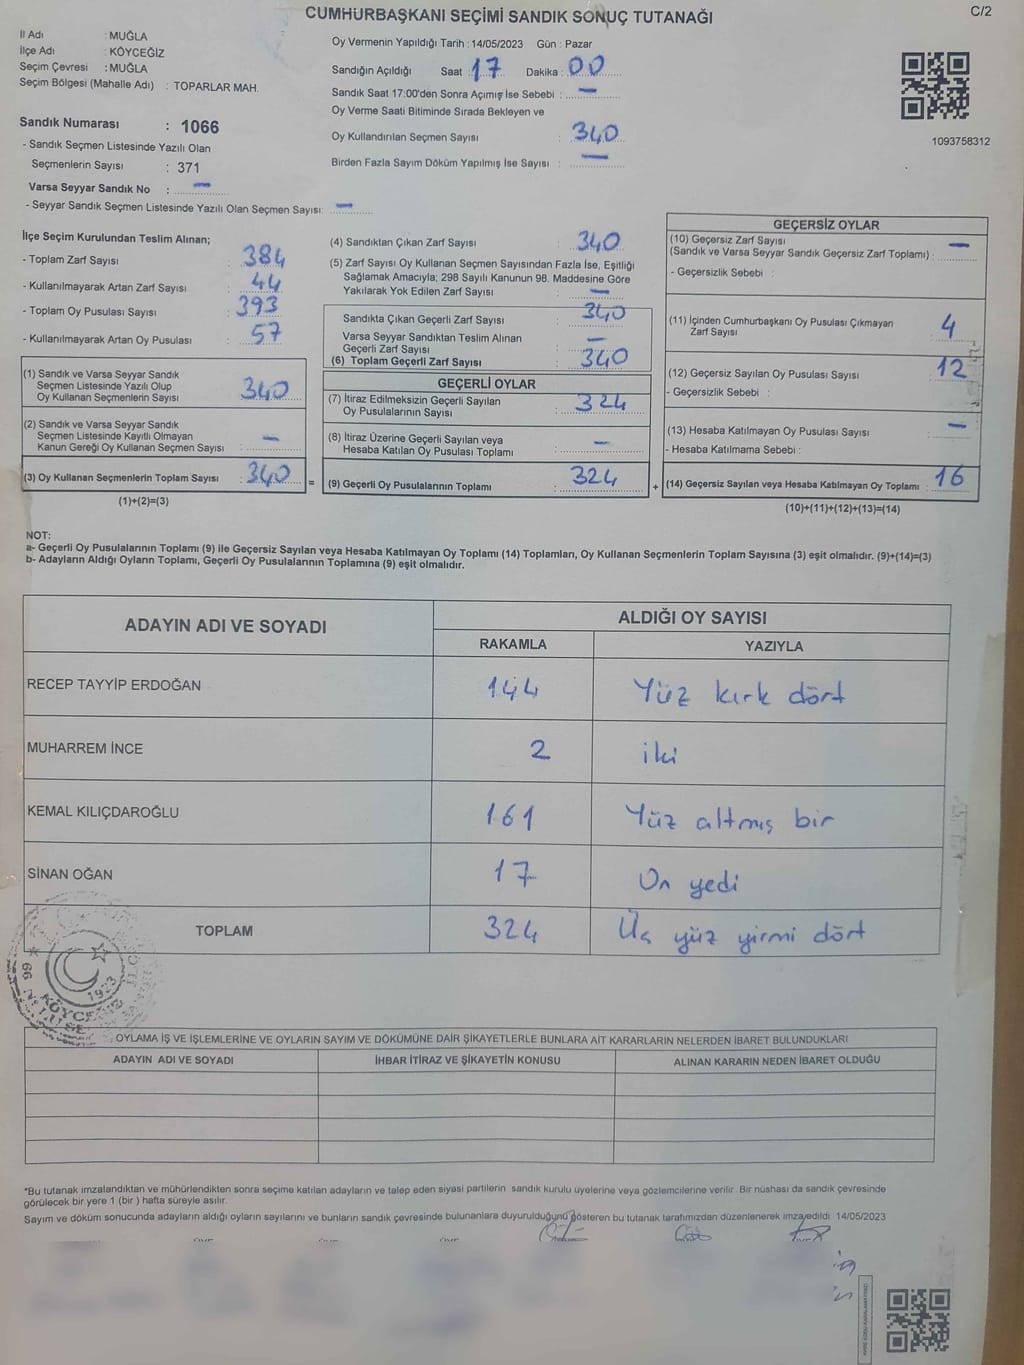 CUMHURBAŞKANI SEÇİMİ SANDIK SONUÇ TUTANAĞI
C/2
İl Adı : MUĞLA
İlçe Adı : KÖYCEĞİZ
Seçim Çevresi : MUĞLA
Seçim Bölgesi (Mahalle Adı) : TOPARLAR MAH.
Sandık Numarası : 1066
- Sandık Seçmen Listesinde Yazılı Olan
Seçmenlerin Sayısı : 371
Varsa Seyyar Sandık No : —
- Seyyar Sandık Seçmen Listesinde Yazılı Olan Seçmen Sayısı: —
Oy Vermenin Yapıldığı Tarih : 14/05/2023 Gün : Pazar
Sandığın Açıldığı Saat : 17 Dakika : 00
Sandık Saat 17:00'den Sonra Açımış İse Sebebi : —
Oy Verme Saati Bitiminde Sırada Bekleyen ve
Oy Kullandırılan Seçmen Sayısı : 340
Birden Fazla Sayım Döküm Yapılmış İse Sayısı : —
1093758312
İlçe Seçim Kurulundan Teslim Alınan;
- Toplam Zarf Sayısı : 384
- Kullanılmayarak Artan Zarf Sayısı : 44
- Toplam Oy Pusulası Sayısı : 393
- Kullanılmayarak Artan Oy Pusulası : 57
(1) Sandık ve Varsa Seyyar Sandık
Seçmen Listesinde Yazılı Olup
Oy Kullanan Seçmenlerin Sayısı : 340
(2) Sandık ve Varsa Seyyar Sandık
Seçmen Listesinde Kayıtlı Olmayan
Kanun Gereği Oy Kullanan Seçmen Sayısı : —
(3) Oy Kullanan Seçmenlerin Toplam Sayısı : 340 =
(1)+(2)=(3)
(4) Sandıktan Çıkan Zarf Sayısı : 340
(5) Zarf Sayısı Oy Kullanan Seçmen Sayısından Fazla İse, Eşitliği
Sağlamak Amacıyla; 298 Sayılı Kanunun 98. Maddesine Göre
Yakılarak Yok Edilen Zarf Sayısı : —
Sandıkta Çıkan Geçerli Zarf Sayısı : 340
Varsa Seyyar Sandıktan Teslim Alınan
Geçerli Zarf Sayısı : —
(6) Toplam Geçerli Zarf Sayısı : 340
GEÇERLİ OYLAR
(7) İtiraz Edilmeksizin Geçerli Sayılan
Oy Pusulalarının Sayısı : 324
(8) İtiraz Üzerine Geçerli Sayılan veya
Hesaba Katılan Oy Pusulası Toplamı : —
(9) Geçerli Oy Pusulalarının Toplamı : 324 +
GEÇERSİZ OYLAR
(10) Geçersiz Zarf Sayısı
(Sandık ve Varsa Seyyar Sandık Geçersiz Zarf Toplamı) : —
- Geçersizlik Sebebi :
(11) İçinden Cumhurbaşkanı Oy Pusulası Çıkmayan
Zarf Sayısı : 4
(12) Geçersiz Sayılan Oy Pusulası Sayısı : 12
- Geçersizlik Sebebi :
(13) Hesaba Katılmayan Oy Pusulası Sayısı : —
- Hesaba Katılmama Sebebi :
(14) Geçersiz Sayılan veya Hesaba Katılmayan Oy Toplamı : 16
(10)+(11)+(12)+(13)=(14)
NOT:
a- Geçerli Oy Pusulalarının Toplamı (9) ile Geçersiz Sayılan veya Hesaba Katılmayan Oy Toplamı (14) Toplamları, Oy Kullanan Seçmenlerin Toplam Sayısına (3) eşit olmalıdır. (9)+(14)=(3)
b- Adayların Aldığı Oyların Toplamı, Geçerli Oy Pusulalarının Toplamına (9) eşit olmalıdır.
ADAYIN ADI VE SOYADI
ALDIĞI OY SAYISI
RAKAMLA YAZIYLA
RECEP TAYYİP ERDOĞAN 144 Yüz kırk dört
MUHARREM İNCE 2 iki
KEMAL KILIÇDAROĞLU 161 Yüz altmış bir
SİNAN OĞAN 17 On yedi
TOPLAM 324 Üç yüz yirmi dört
1923
OYLAMA İŞ VE İŞLEMLERİNE VE OYLARIN SAYIM VE DÖKÜMÜNE DAİR ŞİKAYETLERLE BUNLARA AİT KARARLARIN NELERDEN İBARET BULUNDUKLARI
ADAYIN ADI VE SOYADI İHBAR İTİRAZ VE ŞİKAYETİN KONUSU ALINAN KARARIN NEDEN İBARET OLDUĞU
*Bu tutanak imzalandıktan ve mühürlendikten sonra seçime katılan adayların ve talep eden siyasi partilerin sandık kurulu üyelerine veya gözlemcilerine verilir. Bir nüshası da sandık çevresinde
görülecek bir yere 1 (bir ) hafta süreyle asılır.
Sayım ve döküm sonucunda adayların aldığı oyların sayılarını ve bunların sandık çevresinde bulunanlara duyurulduğunu gösteren bu tutanak tarafımızdan düzenlenerek imzayedildi 14/05/2023